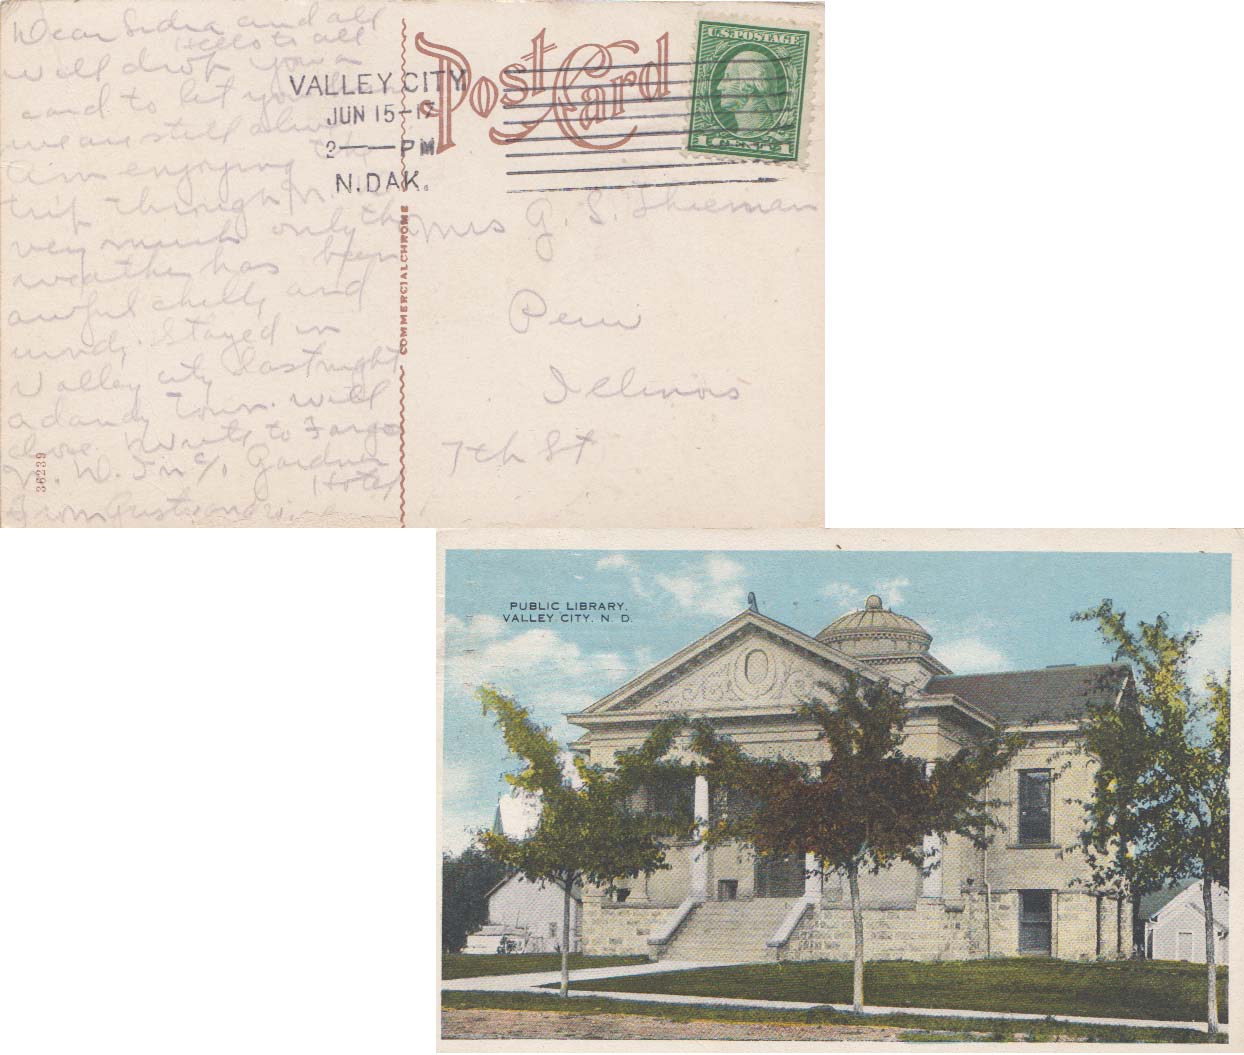 Dear Sidra and all
Hello to all
will drop you a
card to let you
we are still alive
am enjoying the
trip through N.
very much only the
weather has been
awful chilly and
windy. Stayed in
Valley city last night
a dandy town. will
close. Write to Fargo
N. D. Gardner
Hotel
From
36239
VALLEY CITY
JUN 15-17
2 — PM
N.DAK.
Post Card
U.S. POSTAGE
1 CENTS 1
COMMERCIALCHROME
Mrs G. S. Thieman
Peru
Illinois
7th St
PUBLIC LIBRARY,
VALLEY CITY, N. D.